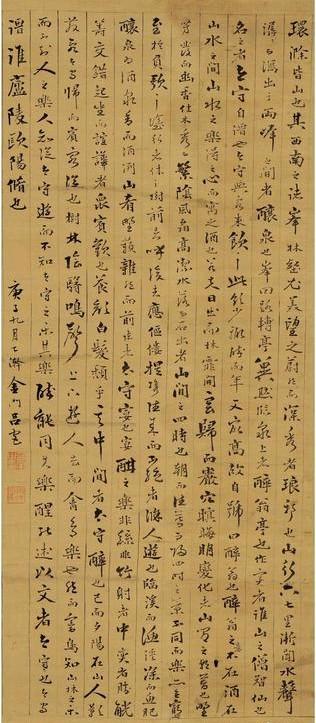 環滁皆山也其西南之諸峯林壑尤美望之蔚然而深秀者琅琊也山行六七里漸聞水聲
潺潺而瀉出于兩峰之間者釀泉也峯回路轉有亭翼然臨於泉上者醉翁亭也作亭者誰山之僧智仙也
名之者誰太守自謂也太守與客來飲于此飲少輒醉而年又最高故自號曰醉翁也醉翁之意不在酒在
山水之間山水之樂得之心而寓之酒也若夫日出而林霏開雲歸而巖穴暝晦明變化者山間之朝暮也野
芳發而幽香佳木秀而繁陰風霜高潔水落而石出者山間之四時也朝而往暮而歸四時之景不同而樂亦無窮
至於負者歌于塗行者休于樹前者呼後者應傴僂提攜往來而不絕者滁人遊也臨溪而漁溪深而魚肥
釀泉為酒泉香而酒洌山肴野蔌雜然而前陳者太守宴也宴酣之樂非絲非竹射者中奕者勝觥
籌交錯起坐而諠譁者衆賓歡也蒼顏白髮頹乎其中間者太守醉也已而夕陽在山人影
散亂太守歸而賓客從也樹林陰翳鳴聲上下遊人去而禽鳥樂也然而禽鳥知山林之樂
而不知人之樂人知從太守遊而不知太守之樂其樂醉能同其樂醒能述以文者太守也太守
謂誰廬陵歐陽脩也
庚子九月下澣金門呂